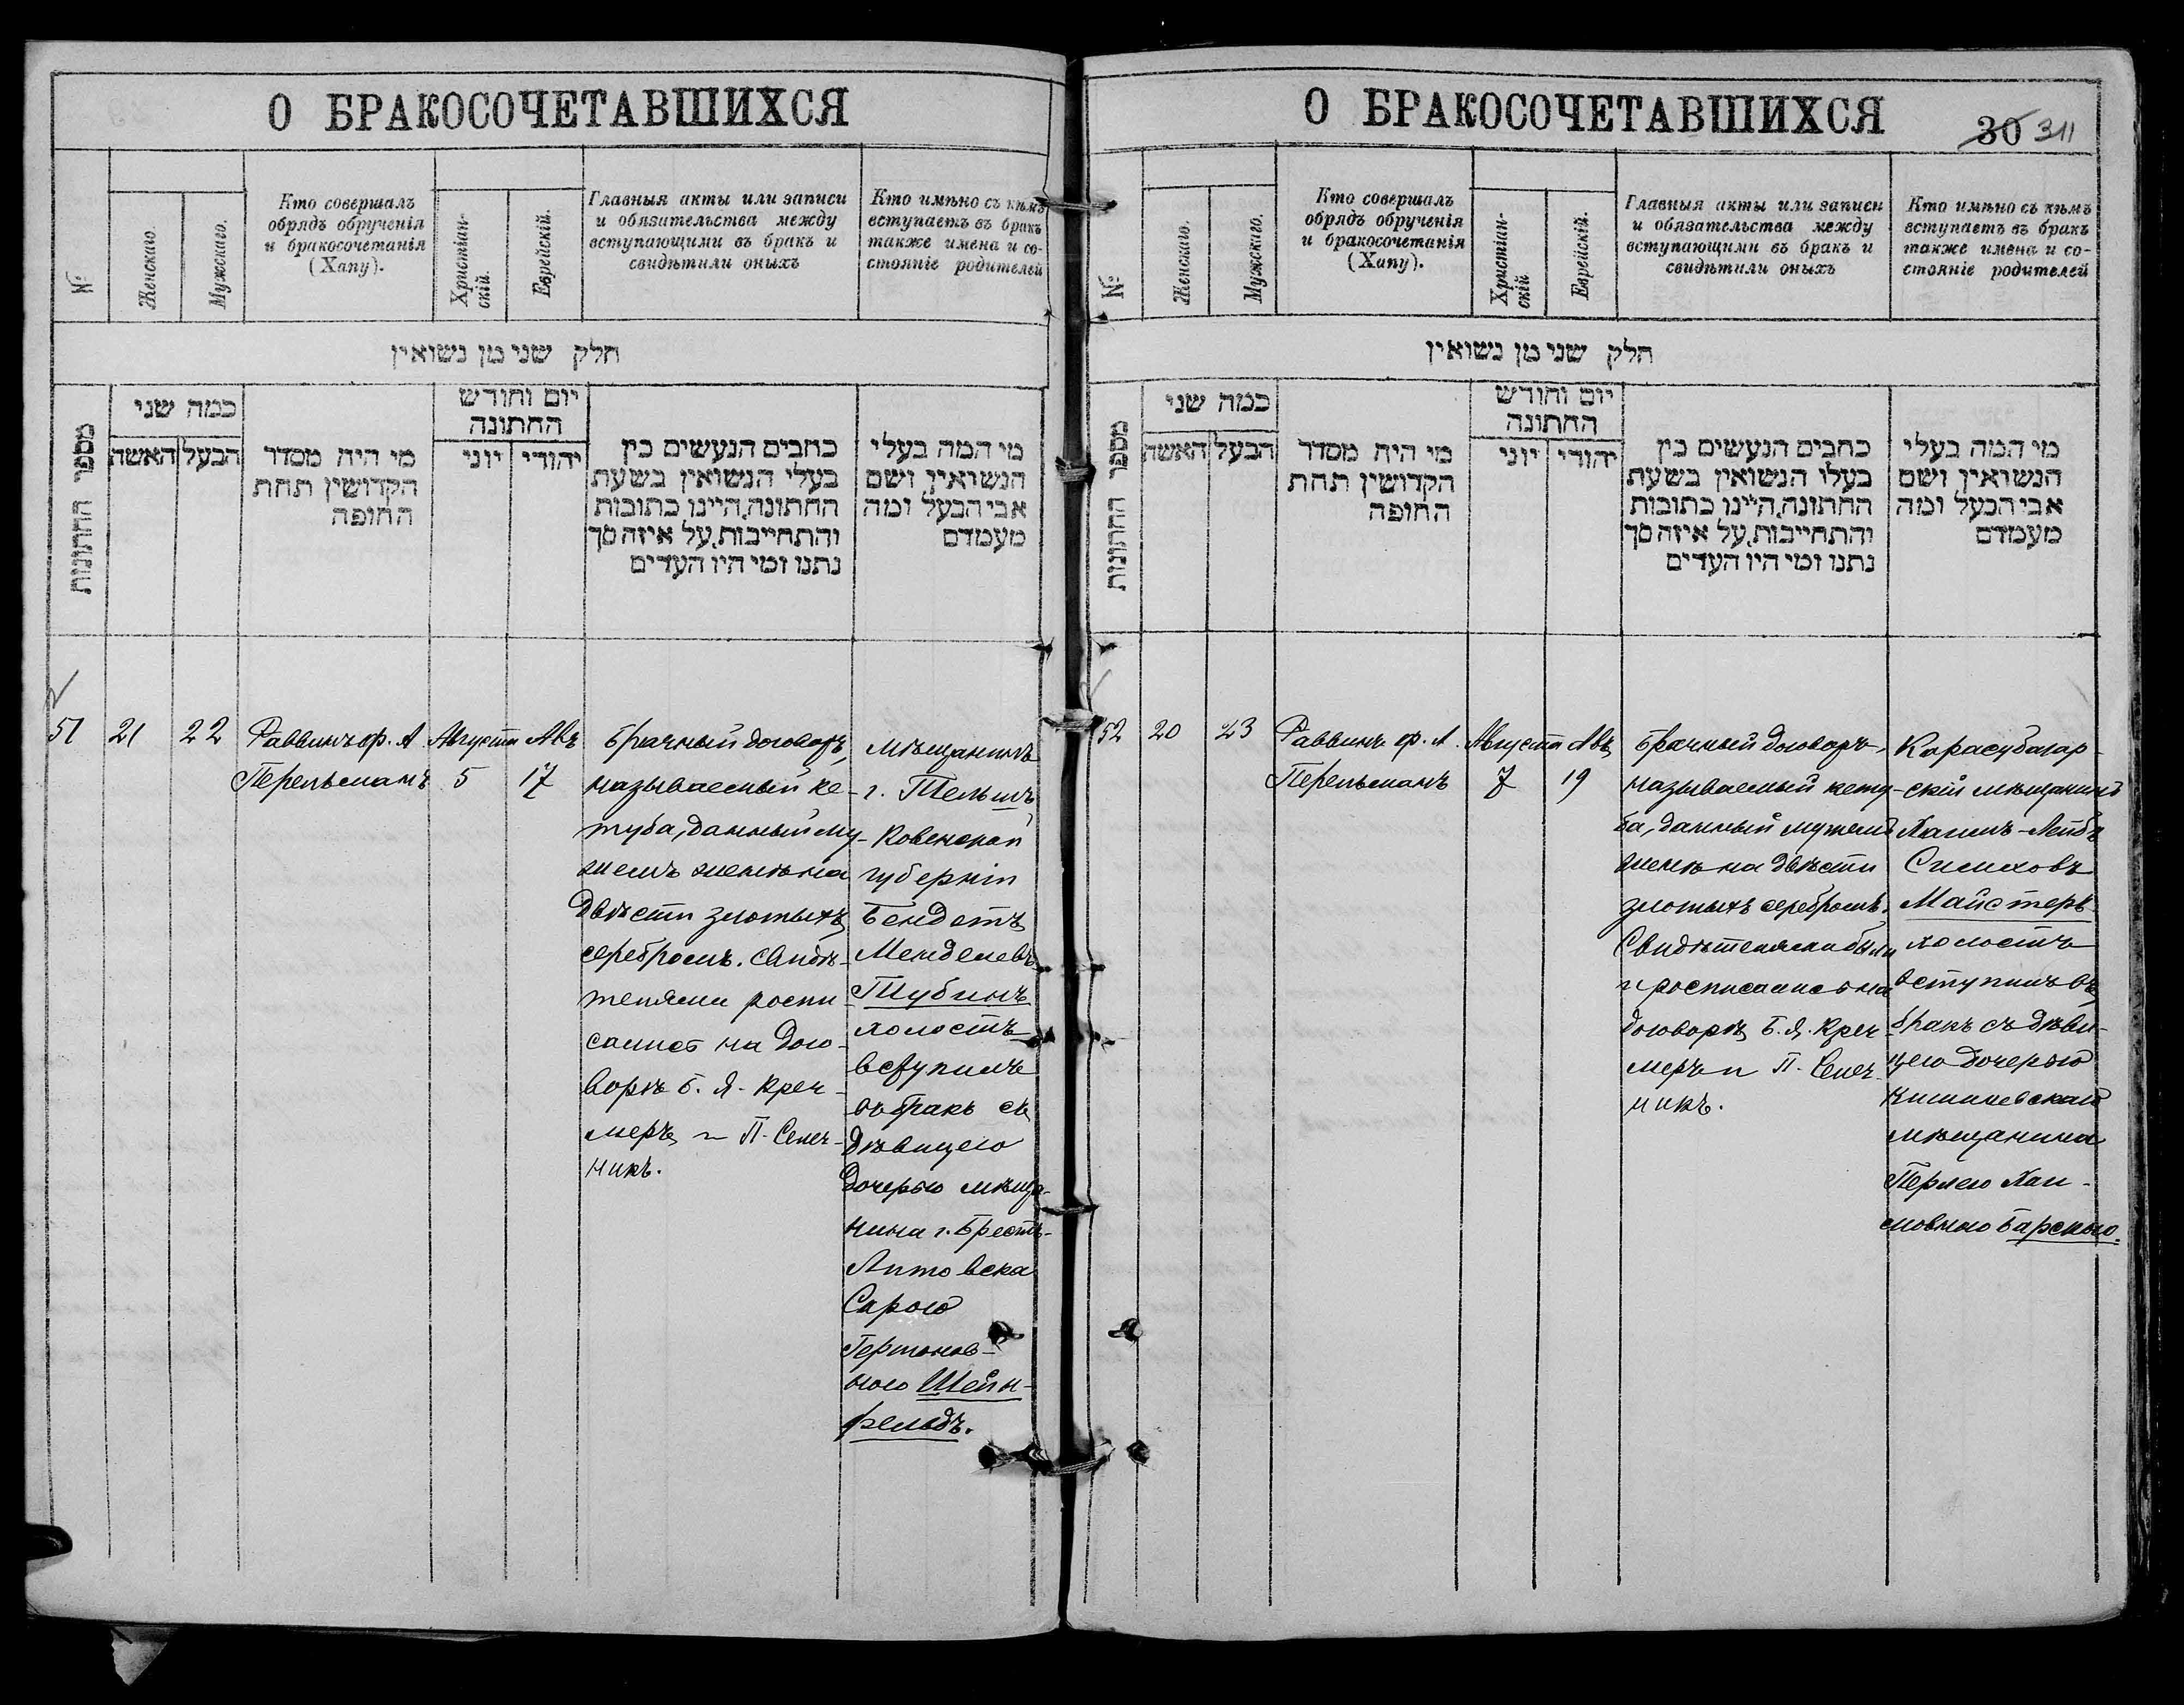 О БРАКОСОЧЕТАВШИХСЯ
№
Женскаго.
Мужскаго.
Кто совершалъ
обрядъ обрученія
и бракосочетанія
(Хапу).
Христіан-
скій.
Еврейскій.
Главныя акты или записи
и обязательства между
вступающими въ бракъ и
свидѣтили оныхъ
Кто имѣно съ кѣмъ
вступаетъ въ бракъ
также имена и со-
стояніе родителей
חלק שני מן נשואין
מספר החתונות
כמה שני
האשה
הבעל
מי היה מסדר
הקדושין תחת
החופה
יום וחודש
החתונה
יוני
יהודי
כתבים הנעשים בין
בעלי הנשואין בשעת
החתונה,היינו כתובות
והתחייבות,על איזה סך
נתנו ומי היו העדים
מי המה בעלי
הנשואין ושם
אבי הבעל ומה
מעמדם
51
21
22
Раввинъ ф. А
Перельманъ
Августа
5
Авъ
17
Брачный договоръ,
называемый ке-
туба, данный му-
жемъ женѣ на
двѣсти злотыхъ
серебромъ. Свидѣ-
телями роспи-
сались на дого-
ворѣ Б. Я. Креч-
меръ и П. Сенеч-
никъ.
Мѣщанинъ
г. Тельшъ
Ковенской
губерніи
Бендетъ
Менделевъ
Тубинъ
холостъ
вступилъ
въ бракъ съ
дѣвицею
дочерью мѣща-
нина г. Брестъ-
Литовска
Сарою
Гершонов-
ною Шейн-
фельдъ.
О БРАКОСОЧЕТАВШИХСЯ
30 311
№
Женскаго.
Мужскаго.
Кто совершалъ
обрядъ обрученія
и бракосочетанія
(Хапу).
Христіан-
скій
Еврейскій.
Главныя акты или записи
и обязательства между
вступающими въ бракъ и
свидѣтили оныхъ
Кто имѣно съ кѣмъ
вступаетъ въ бракъ
также имена и со-
стояніе родителей
חלק שני מן נשואין
מספר החתונות
כמה שני
האשה
הבעל
מי היה מסדר
הקדושין תחת
החופה
יום וחודש
החתונה
יוני
יהודי
כתבים הנעשים בין
בעלי הנשואין בשעת
החתונה,היינו כתובות
והתחייבות,על איזה סך
נתנו ומי היו העדים
מי המה בעלי
הנשואין ושם
אבי הבעל ומה
מעמדם
52
20
23
Раввинъ ф. А.
Перельманъ
Августа
7
Авъ
19
Брачный договоръ,
называемый кету-
ба, данный мужемъ
женѣ на двѣсти
злотыхъ серебромъ.
Свидѣтелями были
и росписались на
договорѣ Б. Я. Креч-
меръ и П. Сенеч-
никъ.
Карасубазар-
скій мѣщанинъ
Хаимъ-Лейбъ
Симховъ
Майстеръ
холостъ
вступилъ въ
бракъ съ дѣви-
цею дочерью
Кишиневскаго
мѣщанина
Перлею Хаи-
мовною Барскою.